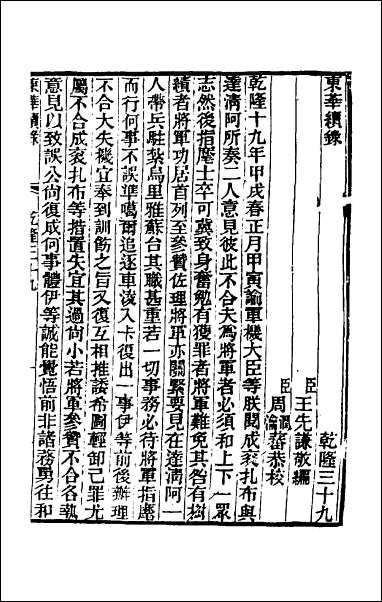 東華續錄
乾隆三十九
臣王先謙敬編
臣周潤蕃周瀹蕃恭校
乾隆十九年甲戌春正月甲寅諭軍機大臣等朕聞成袞扎布與
達淸阿所奏二人意見彼此不合夫為將軍者必須和上下一眾
志然後指麾士卒可冀致身奮勉有獲罪者將軍難免其咎有樹
績者將軍功居首列至參贊佐理將軍亦關緊要見在達淸阿一
人帶兵駐紮烏里雅蘇台其職甚重若一切事務必待將軍指麾
而行何事不誤準噶爾追逐車淩入卡復出一事伊等前後辦理
不合大失機宜奉到訓飭之旨又復互相推諉希圖輕卸己罪尤
屬不合成袞扎布等措置失宜其過尙小若將軍參贊不合各執
意見以致誤公尙復成何事體伊等誠能覺悟前非諸務勇往和
東華續錄
乾隆三十九
一